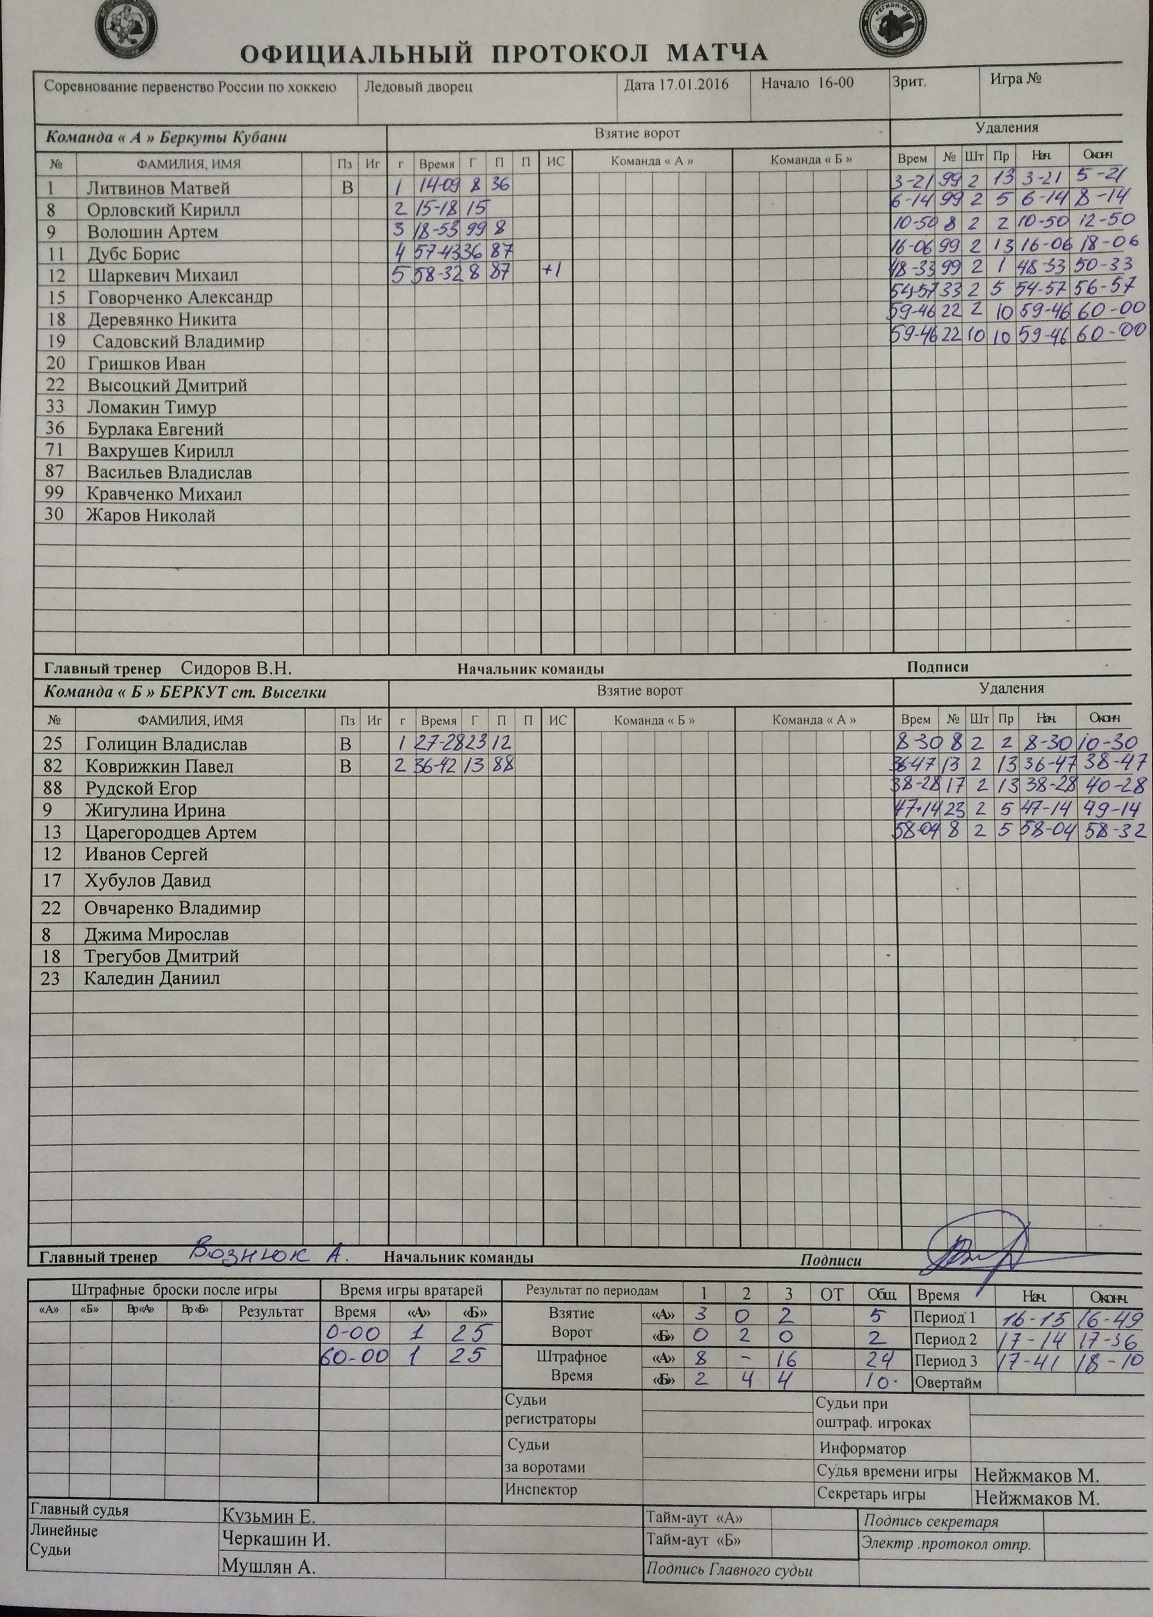 ОФИЦИАЛЬНЫЙ ПРОТОКОЛ МАТЧА
Соревнование первенство России по хоккею Ледовый дворец Дата 17.01.2016 Начало 16-00 Зрит. Игра №
Команда « А » Беркуты Кубани Взятие ворот Удаления
№ ФАМИЛИЯ, ИМЯ Пз Иг г Время Г П П ИС Команда « А » Команда « Б » Врем № Шт Пр Нач. Оконч
1 Литвинов Матвей В 1 14-09 8 36 3-21 99 2 13 3-21 5-21
8 Орловский Кирилл 2 15-18 15 6-14 99 2 5 6-14 8-14
9 Волошин Артем 3 18-53 99 8 10-50 8 2 2 10-50 12-50
11 Дубс Борис 4 57-43 36 87 16-06 99 2 13 16-06 18-06
12 Шаркевич Михаил 5 58-32 8 87 +1 48-33 99 2 1 48-33 50-33
15 Говорченко Александр 54-57 33 2 5 54-57 56-57
18 Деревянко Никита 59-46 22 2 10 59-46 60-00
19 Садовский Владимир 59-46 22 10 10 59-46 60-00
20 Гришков Иван
22 Высоцкий Дмитрий
33 Ломакин Тимур
36 Бурлака Евгений
71 Вахрушев Кирилл
87 Васильев Владислав
99 Кравченко Михаил
30 Жаров Николай
Главный тренер Сидоров В.Н. Начальник команды Подписи
Команда « Б » БЕРКУТ ст. Выселки Взятие ворот Удаления
№ ФАМИЛИЯ, ИМЯ Пз Иг г Время Г П П ИС Команда « Б » Команда « А » Врем № Шт Пр Нач. Оконч
25 Голицин Владислав В 1 27-28 23 12 8-30 8 2 2 8-30 10-30
82 Коврижкин Павел В 2 36-42 13 88 36-47 13 2 13 36-47 38-47
88 Рудской Егор 38-28 17 2 13 38-28 40-28
9 Жигулина Ирина 47-14 23 2 5 47-14 49-14
13 Царегородцев Артем 58-04 8 2 5 58-04 58-32
12 Иванов Сергей
17 Хубулов Давид
22 Овчаренко Владимир
8 Джима Мирослав
18 Трегубов Дмитрий
23 Каледин Даниил
Главный тренер Вознюк А. Начальник команды Подписи
Штрафные броски после игры Время игры вратарей Результат по периодам 1 2 3 ОТ Общ. Время Нач. Оконч.
«А» «Б» Вр«А» Вр«Б» Результат Время «А» «Б» Взятие Ворот «А» 3 0 2 5 Период 1 16-15 16-49
0-00 1 25 «Б» 0 2 0 2 Период 2 17-14 17-36
60-00 1 25 Штрафное Время «А» 8 - 16 24 Период 3 17-41 18-10
«Б» 2 4 4 10 Овертайм
Судьи регистраторы Судьи при оштраф. игроках
Судьи за воротами Информатор
Судья времени игры Нейжмаков М.
Инспектор Секретарь игры Нейжмаков М.
Главный судья Кузьмин Е. Тайм-аут «А» Подпись секретаря
Линейные Судьи Черкашин И. Тайм-аут «Б» Электр .протокол отпр.
Мушлян А. Подпись Главного судьи